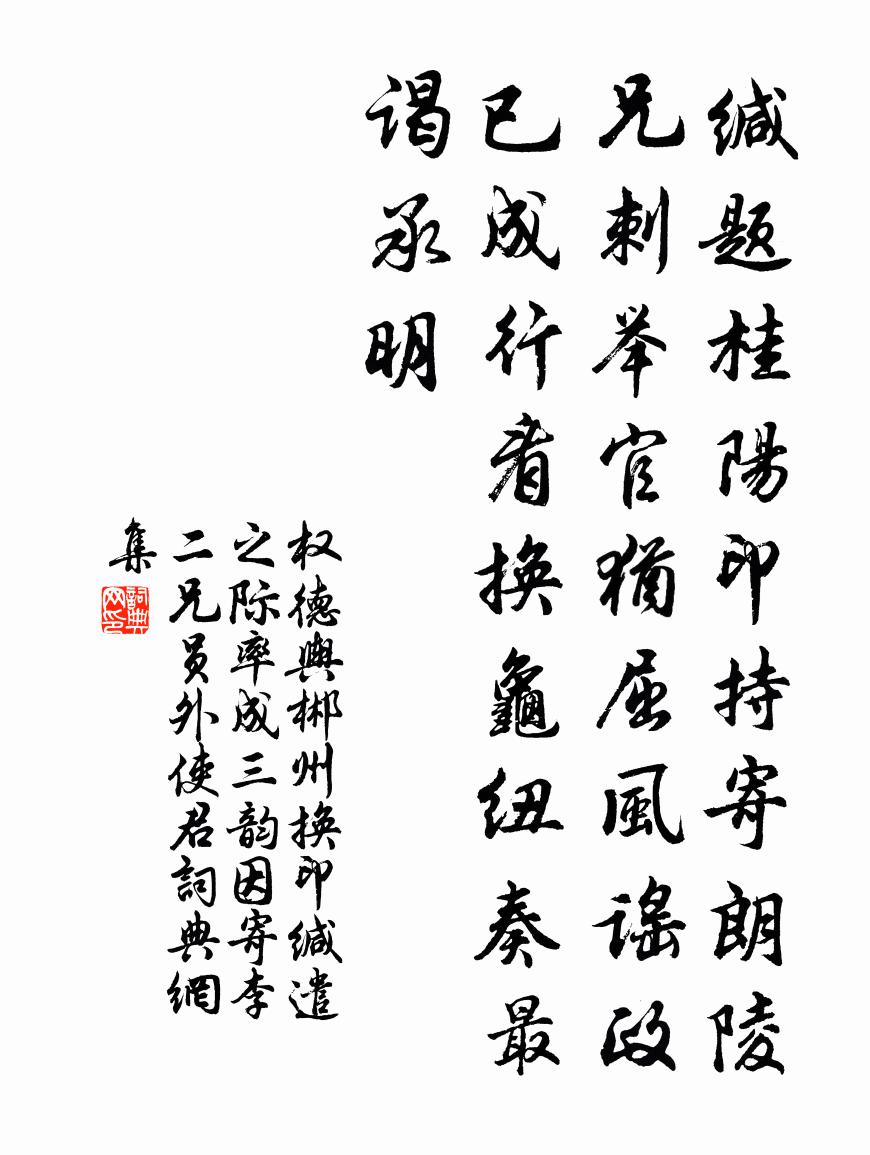 缄题桂陽印持寄朗陵
兄刺举官猶屈風謡政
已成行看换龜纽奏最
谒承明
权德輿郴州换印缄遣
之际率成三韵因寄李
二兄员外使君詞典網
集
詞典網印